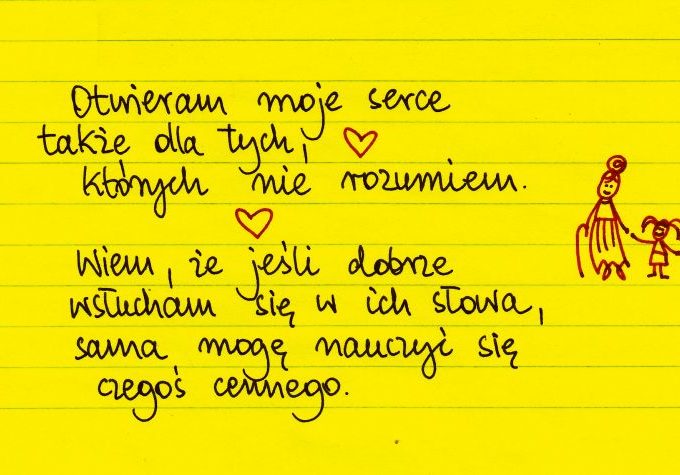 Otwieram moje serce
także dla tych,
których nie rozumiem.
Wiem, że jeśli dobrze
wsłucham się w ich słowa,
sama mogę nauczyć się
czegoś cennego.